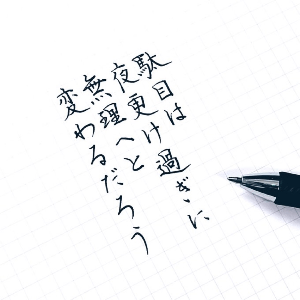 駄目は
夜更け過ぎに
無理へと
変わるだろう